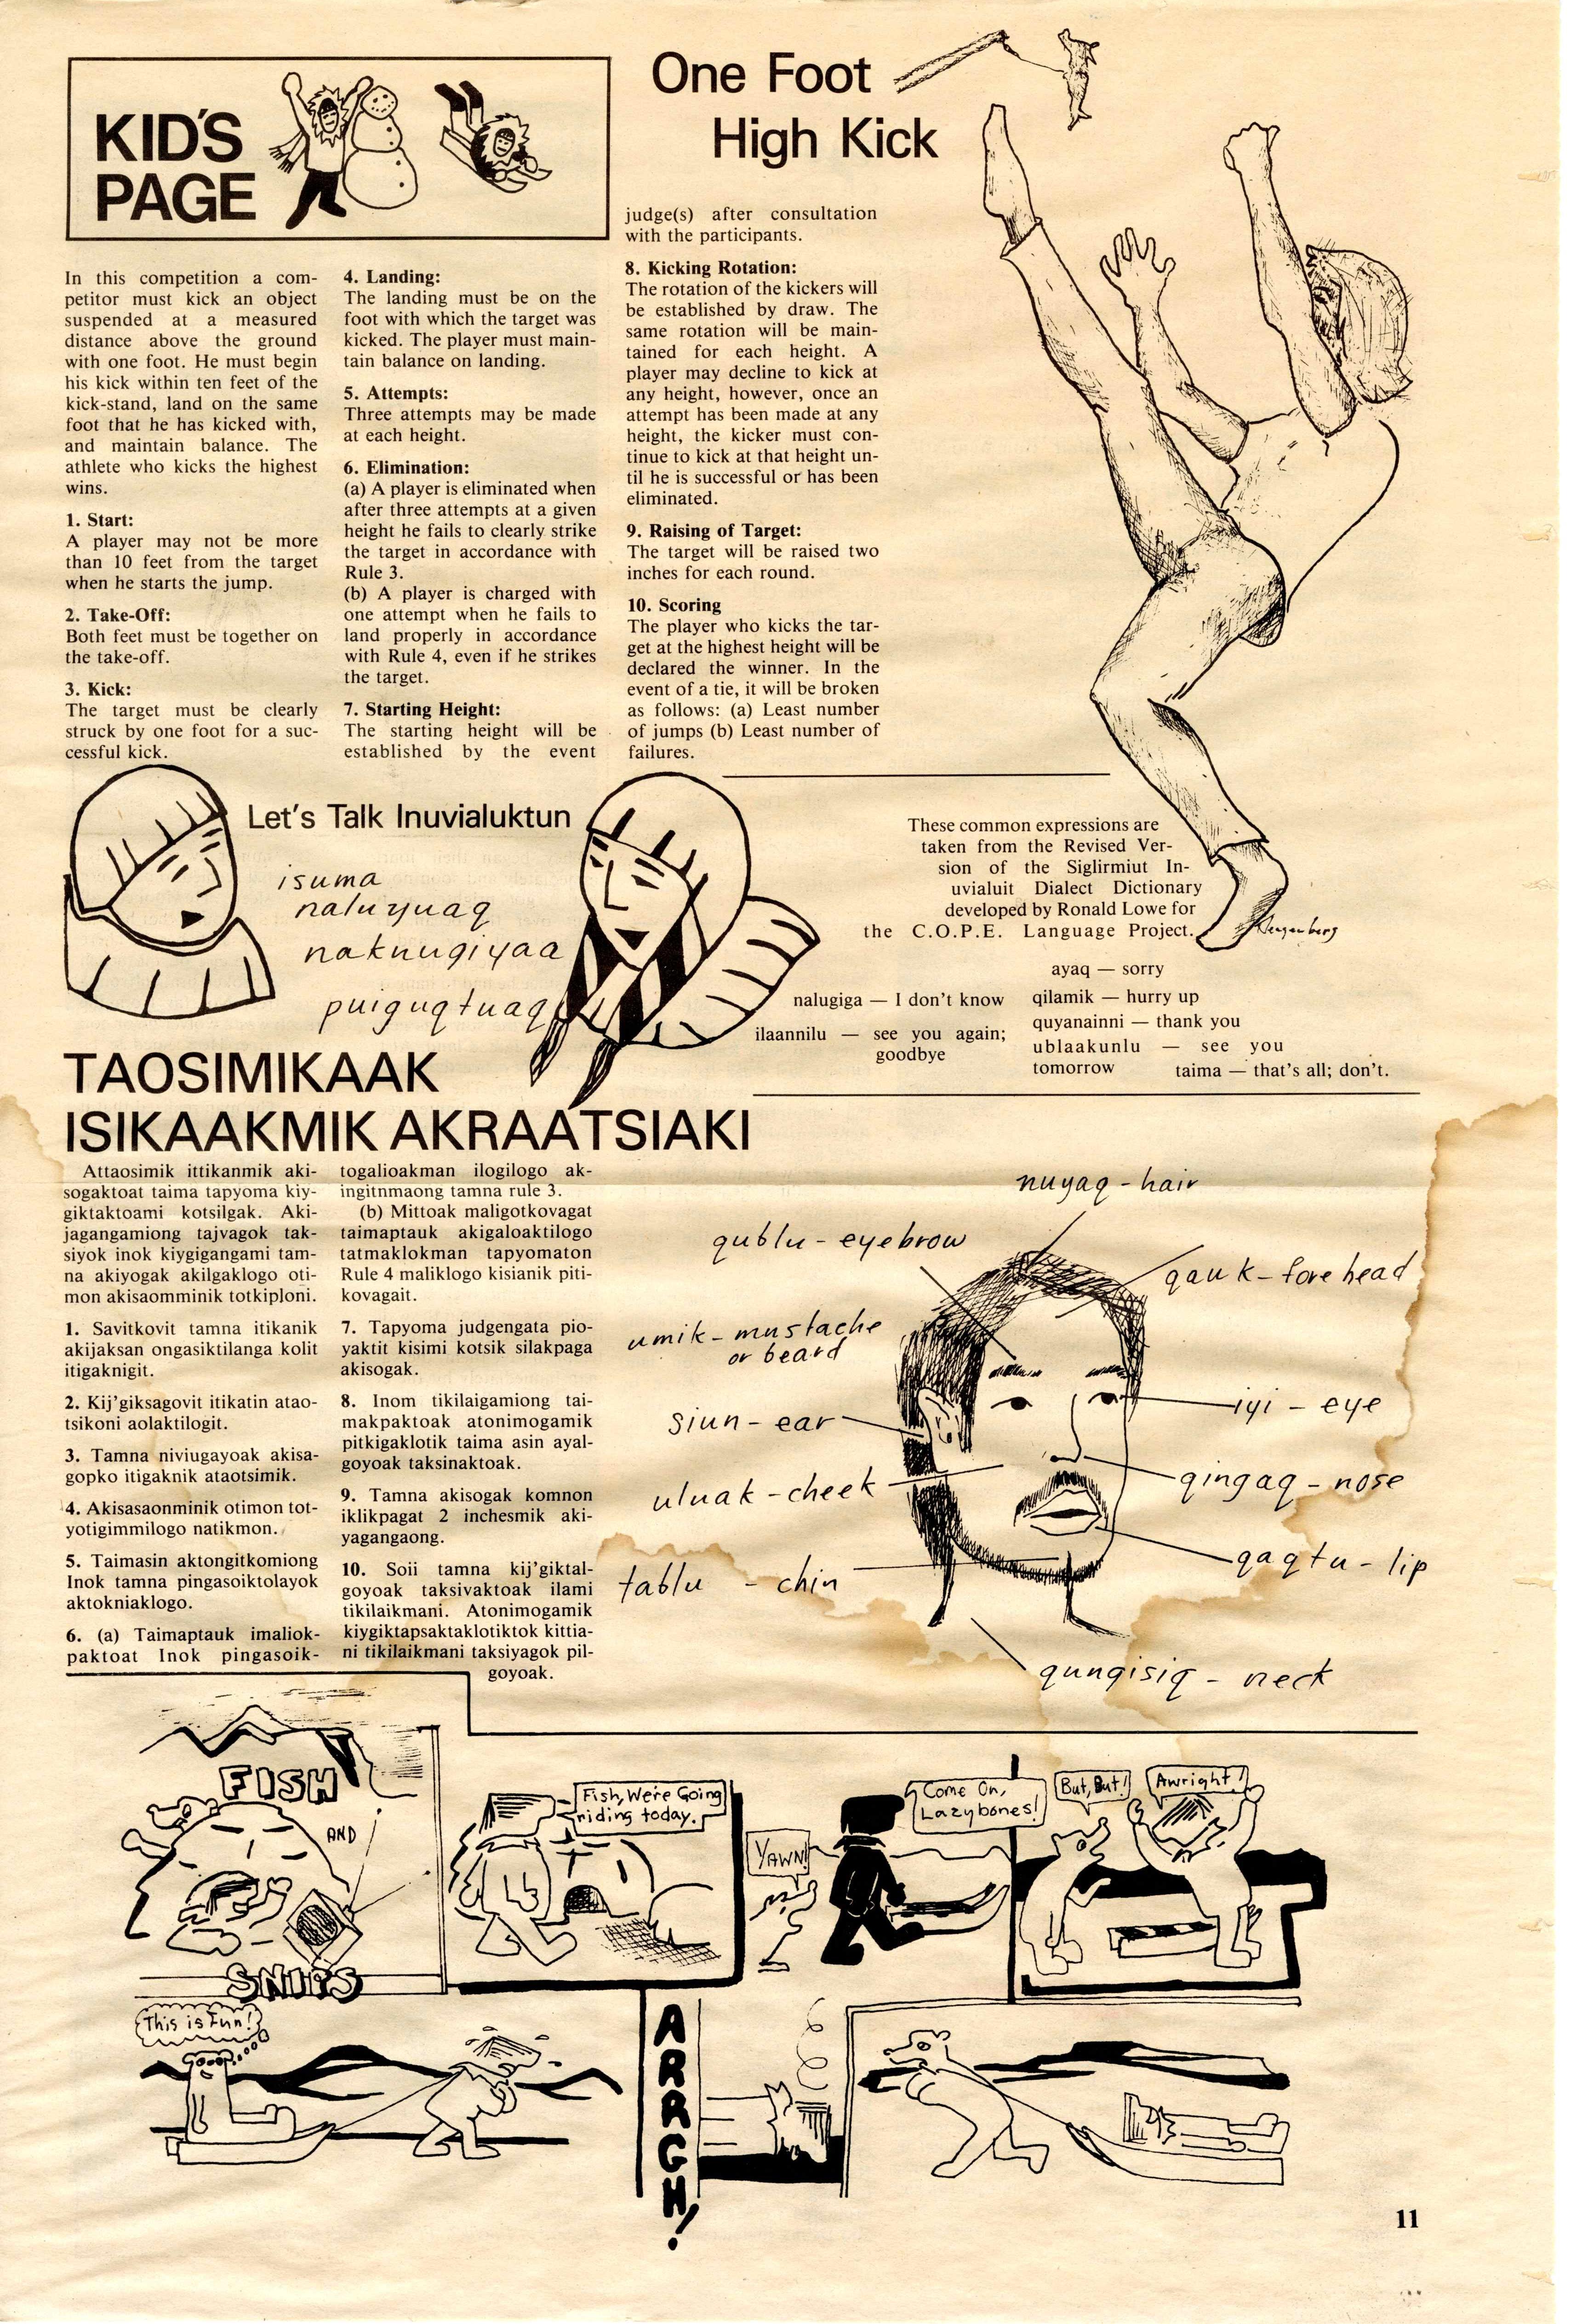 KID'S
PAGE
One Foot
High Kick
In this competition a com-
petitor must kick an object
suspended at a measured
distance above the ground
with one foot. He must begin
his kick within ten feet of the
kick-stand, land on the same
foot that he has kicked with,
and maintain balance. The
athlete who kicks the highest
wins.
1. Start:
A player may not be more
than 10 feet from the target
when he starts the jump.
2. Take-Off:
Both feet must be together on
the take-off.
3. Kick:
The target must be clearly
struck by one foot for a suc-
cessful kick.
4. Landing:
The landing must be on the
foot with which the target was
kicked. The player must main-
tain balance on landing.
5. Attempts:
Three attempts may be made
at each height.
6. Elimination:
(a) A player is eliminated when
after three attempts at a given
height he fails to clearly strike
the target in accordance with
Rule 3.
(b) A player is charged with
one attempt when he fails to
land properly in accordance
with Rule 4, even if he strikes
the target.
7. Starting Height:
The starting height will be
established by the event
judge(s) after consultation
with the participants.
8. Kicking Rotation:
The rotation of the kickers will
be established by draw. The
same rotation will be main-
tained for each height. A
player may decline to kick at
any height, however, once an
attempt has been made at any
height, the kicker must con-
tinue to kick at that height un-
til he is successful or has been
eliminated.
9. Raising of Target:
The target will be raised two
inches for each round.
10. Scoring
The player who kicks the tar-
get at the highest height will be
declared the winner. In the
event of a tie, it will be broken
as follows: (a) Least number
of jumps (b) Least number of
failures.
Let's Talk Inuvialuktun
isuma
naluyuaq
naknuqiyaa
puiguqtuaq
These common expressions are
taken from the Revised Ver-
sion of the Siglirmiut In-
uvialuit Dialect Dictionary
developed by Ronald Lowe for
the C.O.P.E. Language Project.
ayaq — sorry
nalugiga — I don't know
ilaannilu — see you again;
goodbye
qilamik — hurry up
quyanainni — thank you
ublaakunlu — see you
tomorrow
taima — that's all; don't.
TAOSIMIKAAK
ISIKAAKMIK AKRAATSIAKI
Attaosimik ittikanmik aki-
sogaktoat taima tapyoma kiy-
giktaktoami kotsilgak. Aki-
jagangamiong tajvagok tak-
siyok inok kiygigangami tam-
na akiyogak akilgaklogo oti-
mon akisaomminik totkiploni.
1. Savitkovit tamna itikanik
akijaksan ongasiktilanga kolit
itigaknigit.
2. Kij'giksagovit itikatin atao-
tsikoni aolaktilogit.
3. Tamna niviugayoak akisa-
gopko itigaknik ataotsimik.
4. Akisasaonminik otimon tot-
yotigimmilogo natikmon.
5. Taimasin aktongitkomiong
Inok tamna pingasoiktolayok
aktokniaklogo.
6. (a) Taimaptauk imaliok-
paktoat Inok pingasoik-
togalioakman ilogilogo ak-
ingitnmaong tamna rule 3.
(b) Mittoak maligotkovagat
taimaptauk akigaloaktilogo
tatmaklokman tapyomaton
Rule 4 maliklogo kisianik piti-
kovagait.
7. Tapyoma judgengata pio-
yaktit kisimi kotsik silakpaga
akisogak.
8. Inom tikilaigamiong tai-
makpaktoak atonimogamik
pitkigaklotik taima asin ayal-
goyoak taksinaktoak.
9. Tamna akisogak komnon
iklikpagat 2 inchesmik aki-
yagangaong.
10. Soii tamna kij'giktal-
goyoak taksivaktoak ilami
tikilaikmani. Atonimogamik
kiygiktapsaktaklotiktok kittia-
ni tikilaikmani taksiyagok pil-
goyoak.
nuyaq - hair
qublu - eyebrow
qauk - forehead
umik - mustache
or beard
iyi - eye
siun - ear
qingaq - nose
uluak - cheek
qaqtu - lip
tablu - chin
qungisiq - neck
FISH
AND
SNIPS
Fish, We're Going
riding today.
YAWN!
Come On,
Lazybones!
But, But!
Awright!
This is Fun!
ARRGH!
11